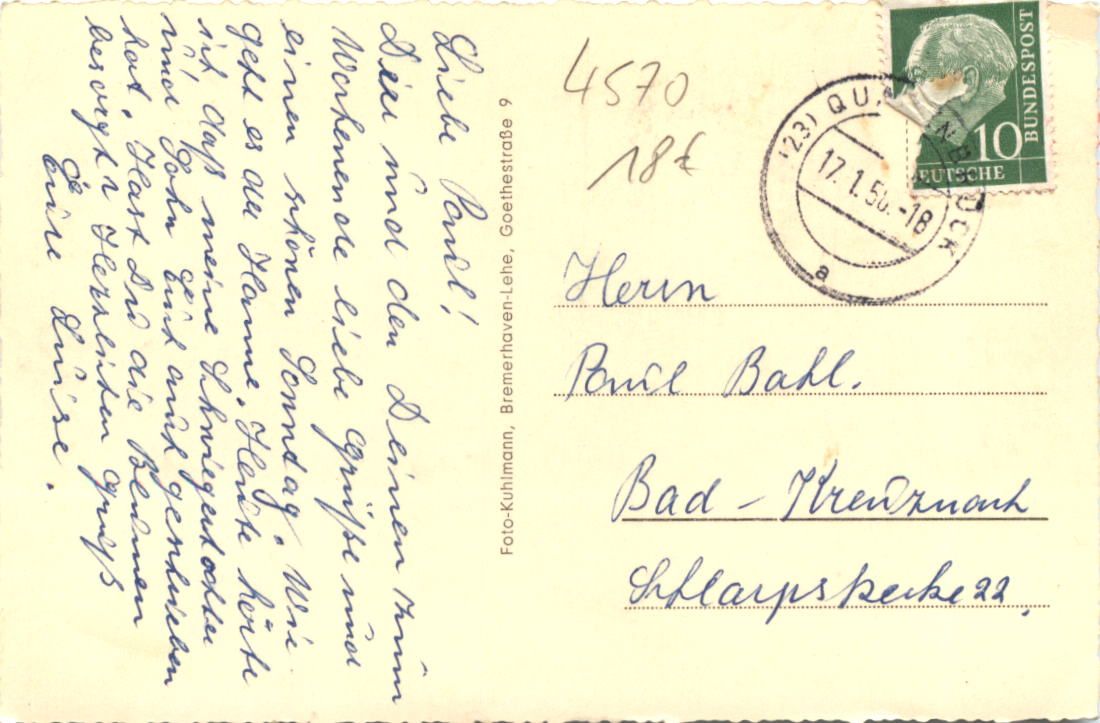 Liebe Paul!
Dir und den Deinen zum
Wochenende liebe Grüße und
einen schönen Sonntag. Wie
geht es der Hanne. Heute hörte
ich daß meine Schwiegertochter
und Sohn Euch auch geschrieben
hat. Hast Du die Blumen
besorgt? Herzlichen Gruß
Eure Luise.
Foto-Kuhlmann, Bremerhaven-Lehe, Goethestraße 9
4570
18€
(23) QUAKENBRÜCK
17.1.56.-18
a
10
DEUTSCHE
BUNDESPOST
Herrn
Paul Bahl.
Bad - Kreuznach
22